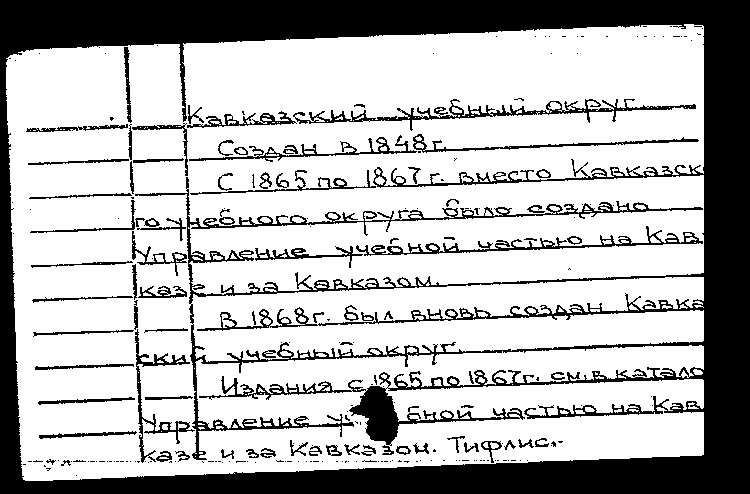 Кавказский учебный округ
Создан в 1848г.
С 1865 по 1867г. вместо Кавказск
го учебного округа было создано
Управление учебной частью на Кав
казе и за Кавказом.
В 1868г. был вновь создан Кавка
ский учебный округ.
Издания с 1865 по 1867г. см. в катало
Управление уч бной частью на Кав
казе и за Кавказом. Тифлис.-